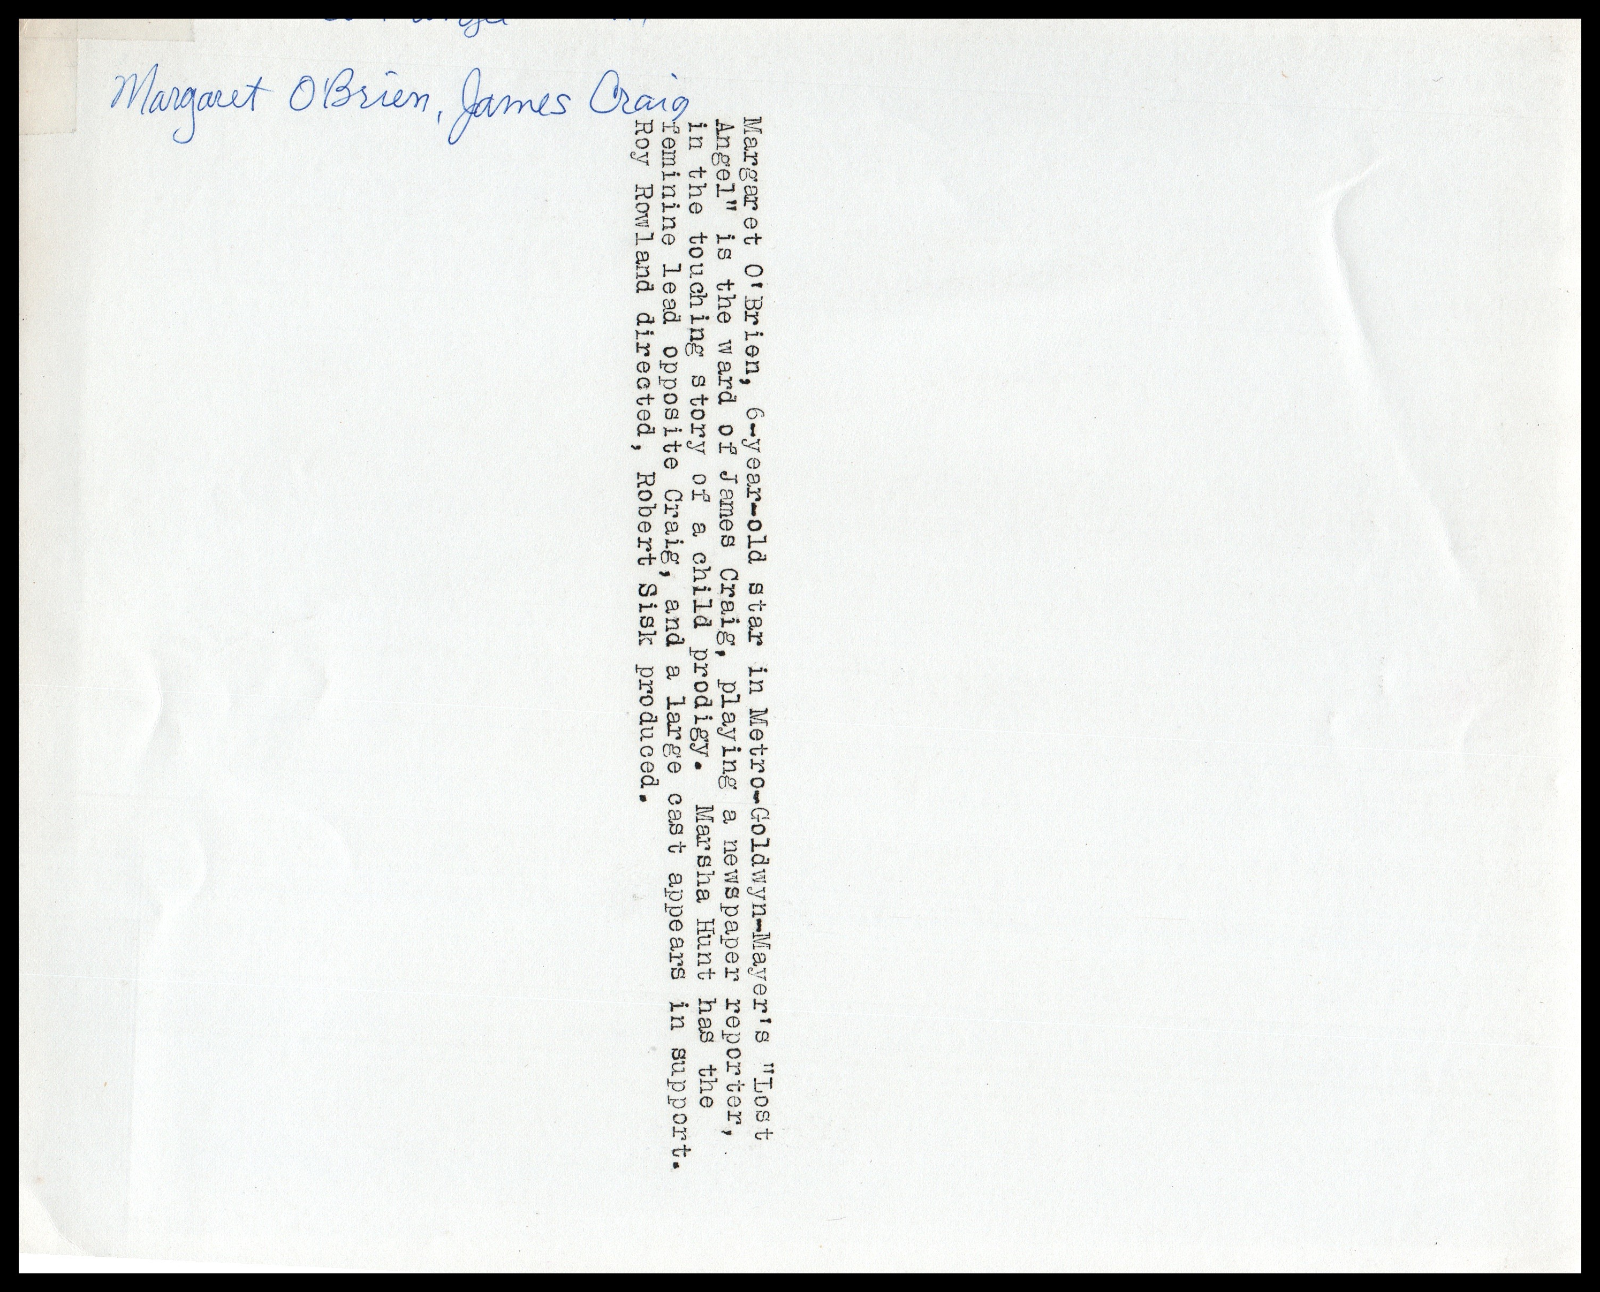 Margaret O'Brien, James Craig
Margaret O'Brien, 6-year-old star in Metro-Goldwyn-Mayer's "Lost
Angel" is the ward of James Craig, playing a newspaper reporter,
in the touching story of a child prodigy. Marsha Hunt has the
feminine lead opposite Craig, and a large cast appears in support.
Roy Rowland directed, Robert Sisk produced.